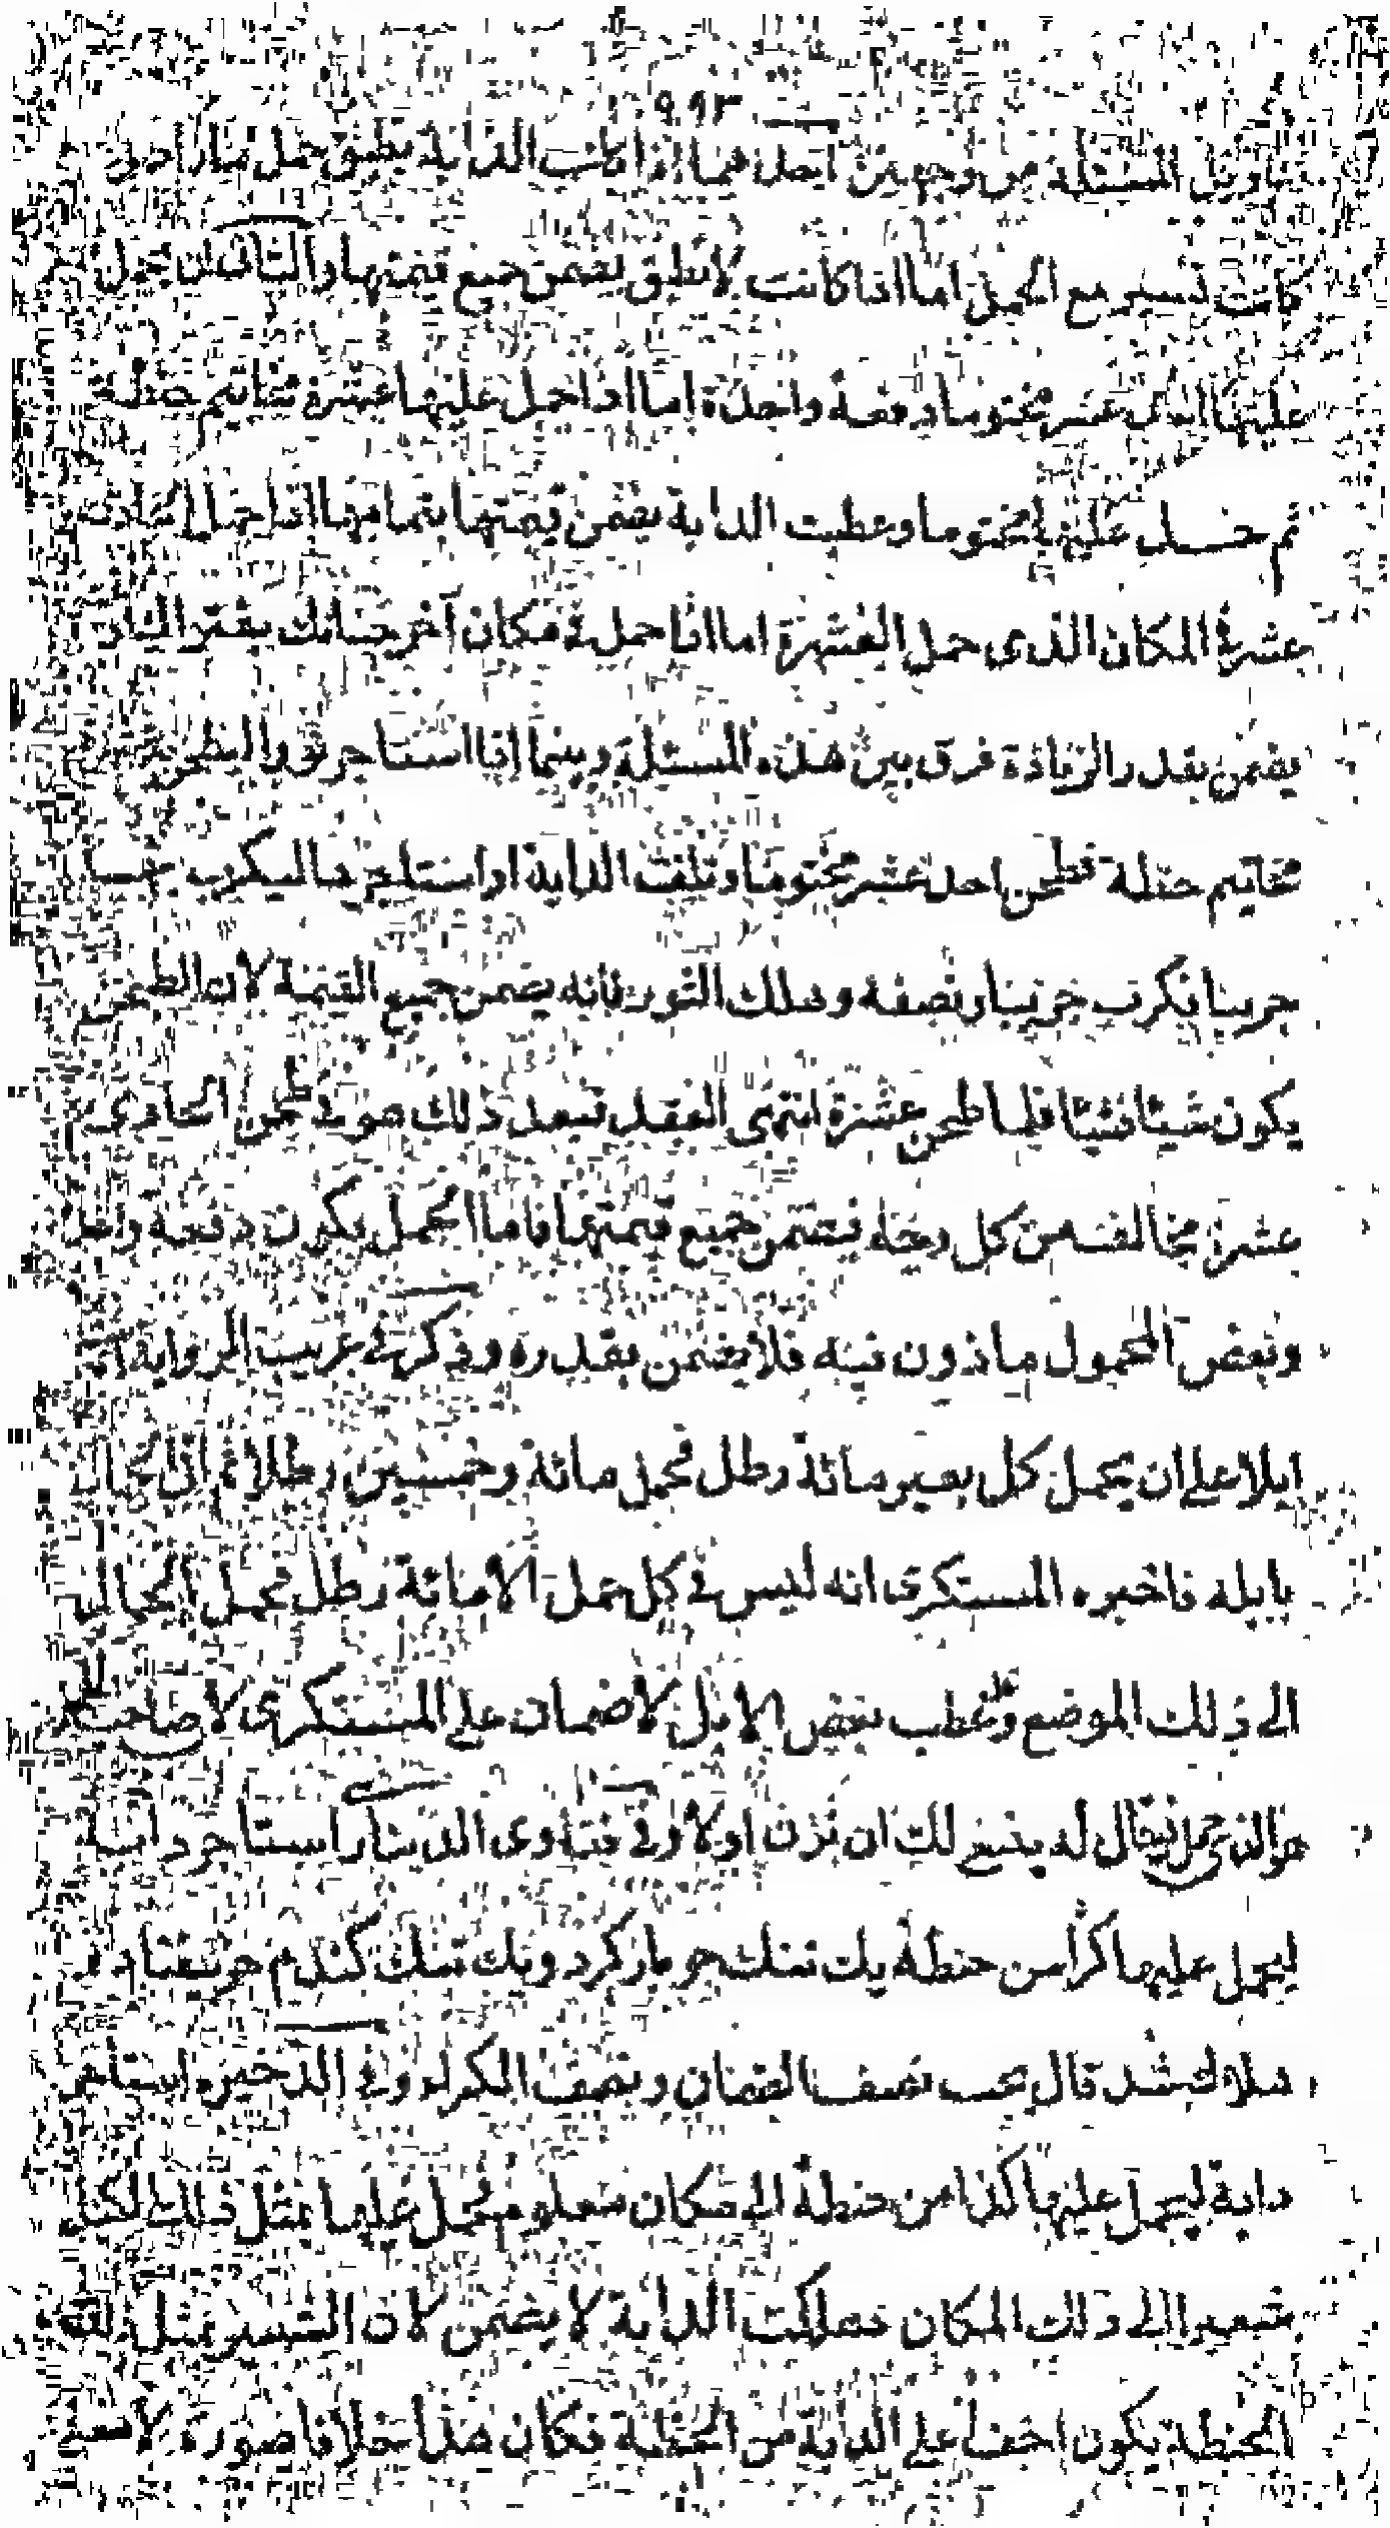 ٩٩٣
تاويل المسئلة من وجهين احدهما اذا كانت الدابة تطيق حمل ما زاد
كانت تسير مع الحمل اما اذا كانت لا تطيق يضمن جميع قيمتها والثانى ان يحمل
عليها احد عشر مختوما دفعة واحدة اما اذا حمل عليها عشرة مخاتيم حنطة
ثم حمل عليها مختوما وعطبت الدابة يضمن قيمتها بتمامها اذا حمل
عشر فى المكان الذى حمل العشرة اما اذا حمل فى مكان آخر
يضمن بقدر الزيادة فرق بين هذه المسئلة وبينما اذا استاجر ثورا ليطحن
مخاتيم حنطة فطحن احد عشر مختوما وتلفت الدابة او استاجرها ليكرب بها
جريبا فكرب جريبا ونصفه وهلك الثور فانه يضمن جميع القيمة لان الطحن
يكون شيئا فشيئا فلما طحن عشرة انتهى العقد فبعد ذلك هو فى طحن الحادى
عشرة مخالف من كل وجه فيضمن جميع قيمتها فاما الحمل يكون دفعة
وبعض المحمول ماذون فيه فلا يضمن بقدره وذكر فى غريب الرواية
ابلا على ان يحمل كل بعير مائة رطل فحمل مائة وخمسين رطلا ثم اتى الجمال
بابله فاخبره المستكرى انه ليس فى كل حمل الا مائة رطل فحمل الجمال
الى ذلك الموضع وعطب بعض الابل لا ضمان على المستكرى لان صاحب
هو الذى حمل فيقال له ينبغى لك ان تزن اولا وفى فتاوى الدينارى استاجر دابة
ليحمل عليها كرا من حنطة يك تنك جو بار كرد ويك تنك كندم
هلاك شد قال يجب نصف الضمان ونصف الكراء وفى الذخيرة استاجر
دابة ليحمل عليها كذا من حنطة الى مكان معلوم فحمل عليها مثل ذلك
شعيرا الى ذلك المكان فهلكت الدابة لا يضمن لان الشعير مثل
الحنطة يكون اخف على الدابة من الحنطة فكان هذا خلافا صورة لا معنى